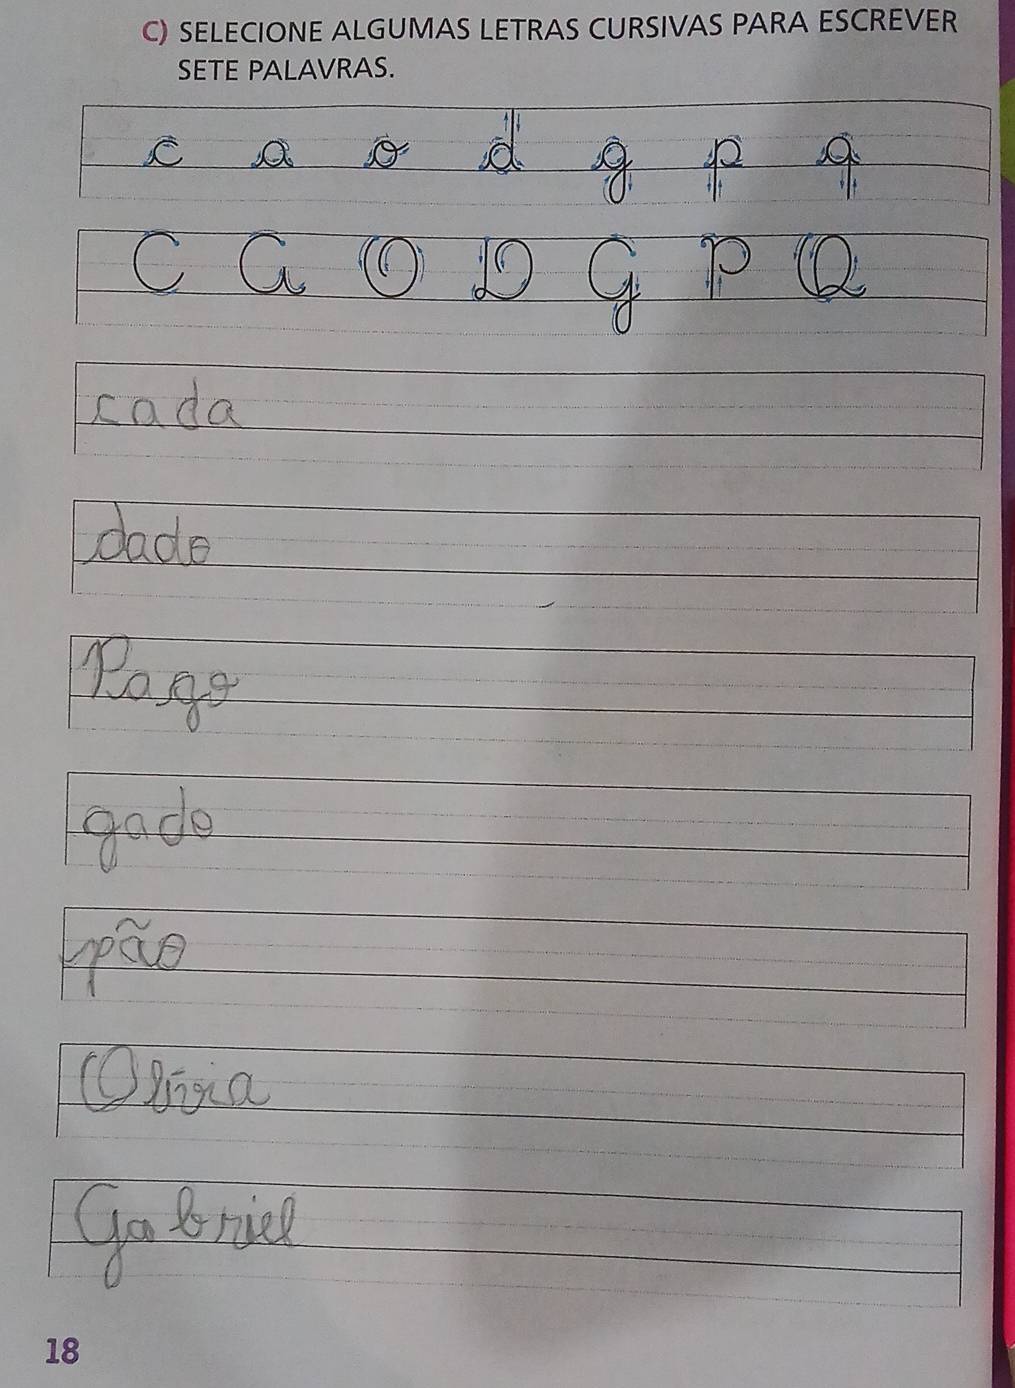 C) SELECIONE ALGUMAS LETRAS CURSIVAS PARA ESCREVER
SETE PALAVRAS.
c a o d g p q
C A O D G P Q
cada
dado
Pago
gado
pão
Olívia
Gabriel
18